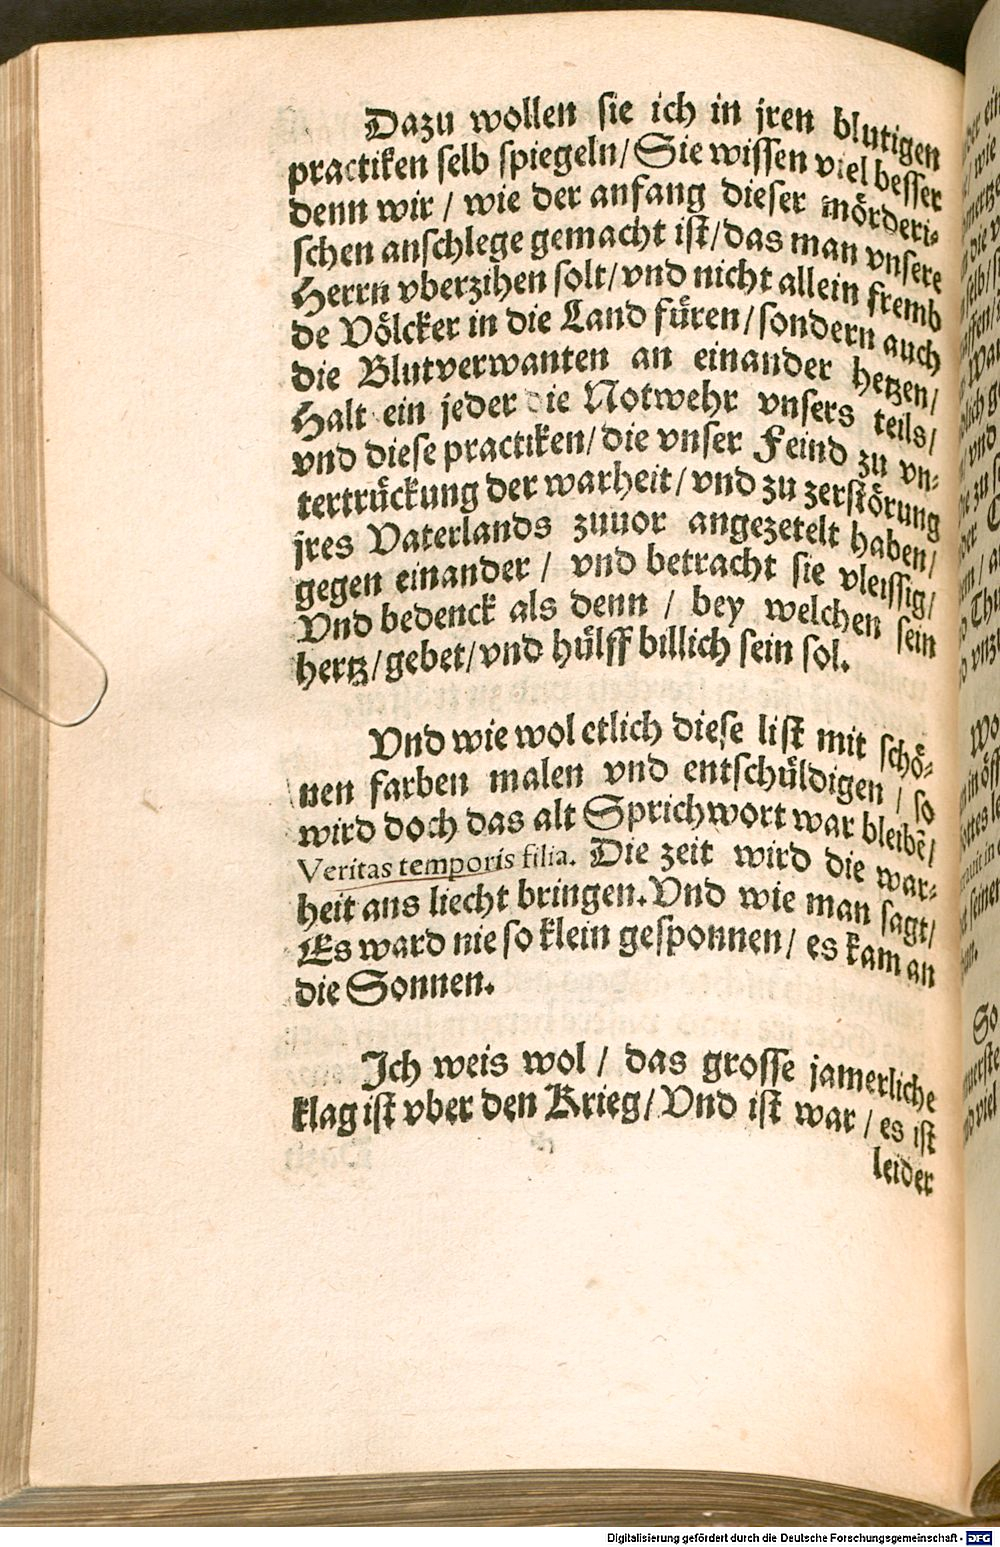 Dazu wollen sie ich in jren blutigen
practiken selb spiegeln/ Sie wissen viel besser
denn wir / wie der anfang dieser mörderi⸗
schen anschlege gemacht ist/ das man vnsere
Herrn vberzihen solt/ vnd nicht allein fremb
de Völcker in die Land füren/ sondern auch
die Blutverwanten an einander hetzen/
Halt ein jeder die Notwehr vnsers teils/
vnd diese practiken/ die vnser Feind zu vn⸗
tertrückung der warheit/ vnd zu zerstörung
jres Vaterlands zuuor angezetelt haben/
gegen einander / vnd betracht sie vleissig/
Vnd bedenck als denn / bey welchen sein
hertz/ gebet/ vnd hülff billich sein sol.
Vnd wie wol etlich diese list mit schö⸗
nen farben malen vnd entschüldigen / so
wird doch das alt Sprichwort war bleibē/
Veritas temporis filia. Die zeit wird die war⸗
heit ans liecht bringen. Vnd wie man sagt/
Es ward nie so klein gesponnen/ es kam an
die Sonnen.
Ich weis wol / das grosse jamerliche
klag ist vber den Krieg/ Vnd ist war / es ist
leider
Digitalisierung gefördert durch die Deutsche Forschungsgemeinschaft - DFG